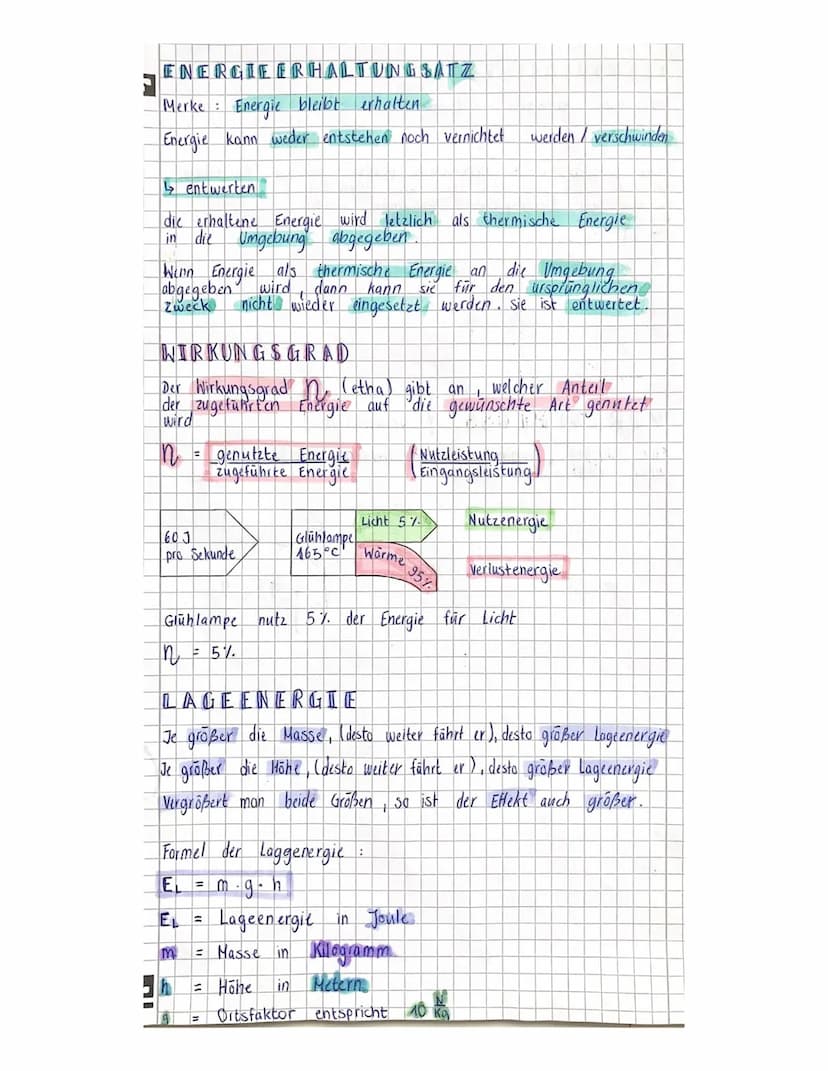 ENERGIEERHALTUNGSSATZ
Merke : Energie bleibt erhalten
Energie kann weder entstehen noch vernichtet werden / verschwinden
↳ entwerten
die erhaltene Energie wird letzlich als thermische Energie
in die Umgebung abgegeben.
Wenn Energie als thermische Energie an die Umgebung
abgegeben wird, dann kann sie für den ursprünglichen
Zweck nicht wieder eingesetzt werden. Sie ist entwertet.
WIRKUNGSGRAD
Der Wirkungsgrad η (etha) gibt an, welcher Anteil
der zugeführten Energie auf die gewünschte Art genutzt
wird
η = genutzte Energie / zugeführte Energie (Nutzleistung / Eingangsleistung)
60 J
pro Sekunde
Glühlampe
165°C
Licht 5%
Wärme 95%
Nutzenergie
Verlustenergie
Glühlampe nutz 5% der Energie für Licht
η = 5%
LAGEENERGIE
Je größer die Masse, (desto weiter fährt er), desto größer Lageenergie
Je größer die Höhe, (desto weiter fährt er), desto größer Lageenergie
Vergrößert man beide Größen, so ist der Effekt auch größer.
Formel der Laggenergie :
EL = m · g · h
EL = Lageenergie in Joule
m = Masse in Kilogramm
h = Höhe in Metern
g = Ortsfaktor entspricht 10 N/Kg